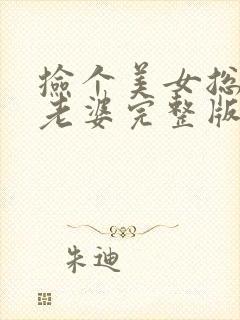 捡个美女总
老婆完整版
朱迪